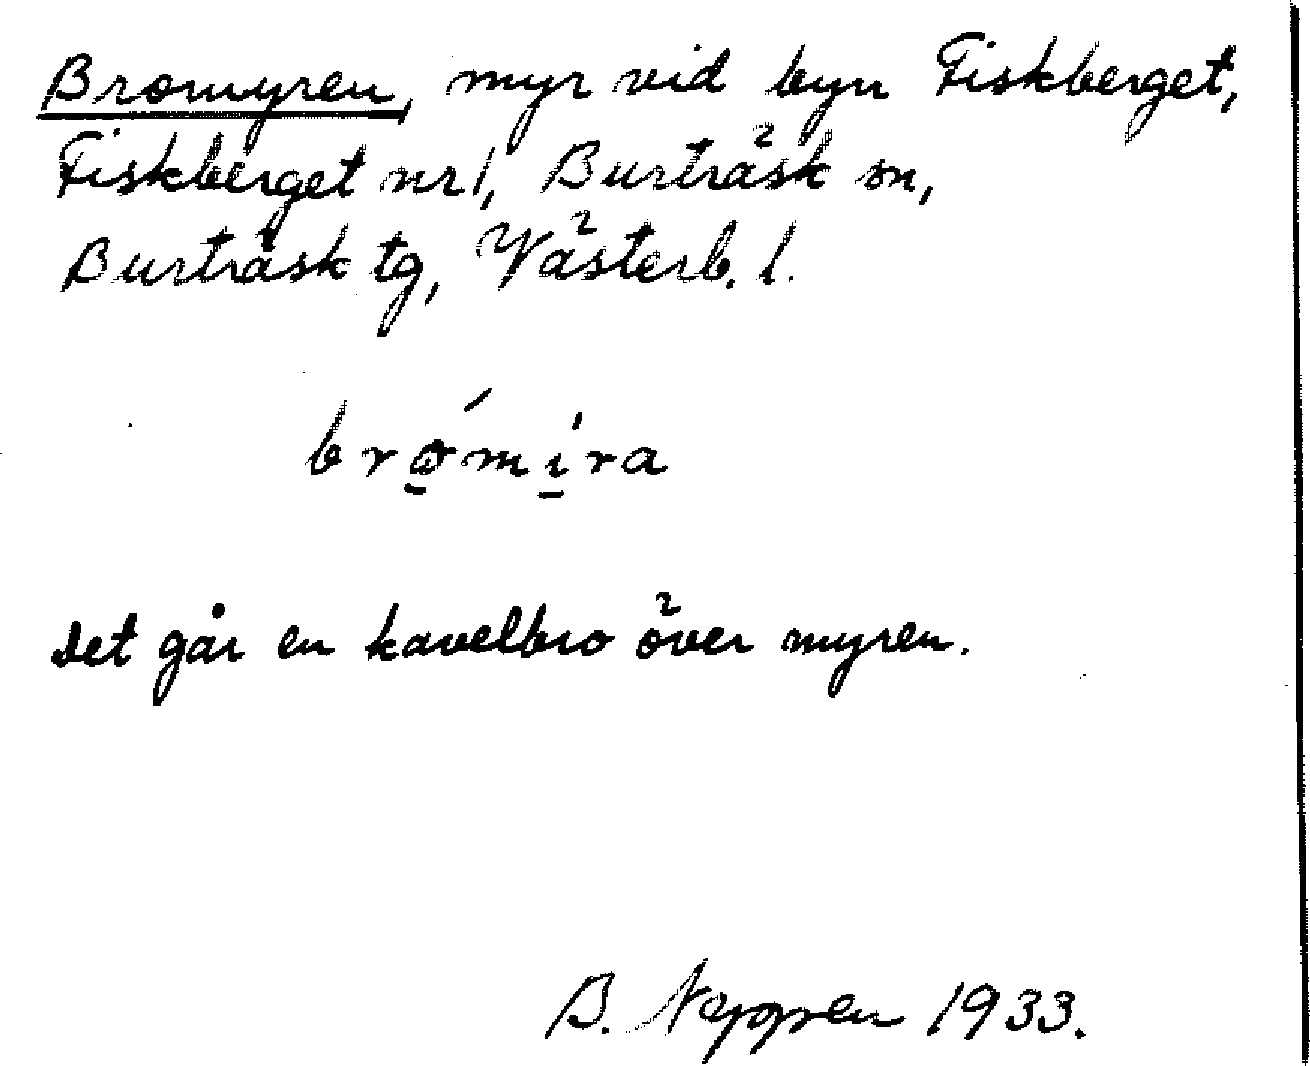 Bromyren, myr vid byn Fiskberget,
Fiskberget nr 1, Burträsk sn,
Burträsk tg, Västerb. l.
brǫ́mi̱̍ra
Det går en kavelbro över myren.
B. 1933.